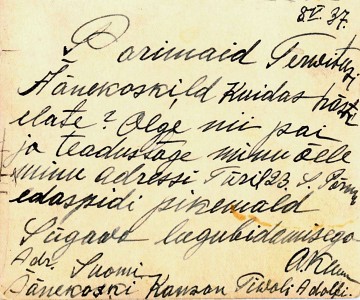 8.V. 37.
Parimaid Tervitusi
Äänekoskild Kuidas härra
elate? Olge nii pai
ja teadustage minu õele
minu adressi Türil 23. S. Pärnu
edaspidi pikemald
Sügava lugubidamisega
Adr. Suomi
Äänekoski Kansan Tivoli Adolfi.